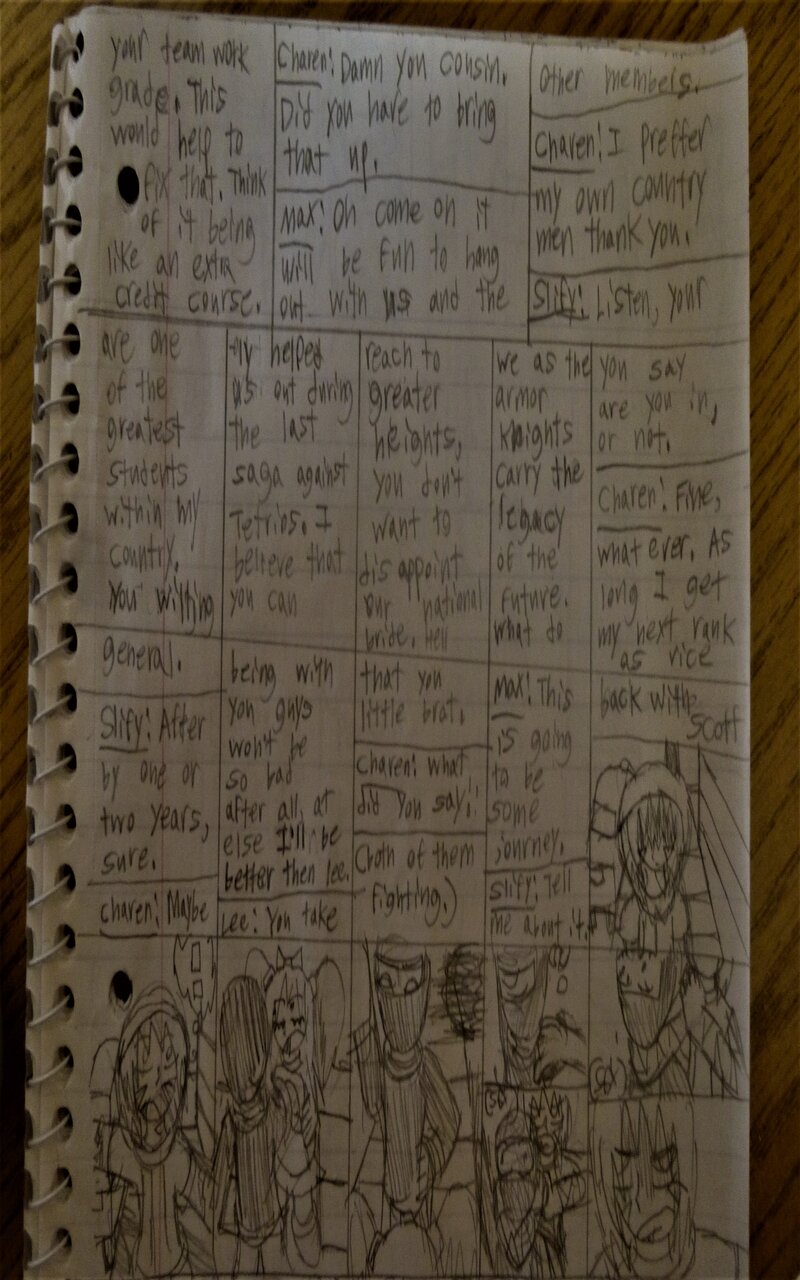 your team work
grade. This
would help to
fix that. Think
of it being
like an extra
credit course.
Charen: Damn you cousin.
Did you have to bring
that up.
Max: Oh come on it
will be fun to hang
out with us and the
other members.
Charen: I preffer
my own country
men thank you.
Slify: Listen, your
are one
of the
greatest
students
within my
country.
You willing
helped
us out during
the last
saga against
Tetrios. I
believe that
you can
reach to
greater
heights,
you don't
want to
disappoint
our national
bride. Hell
we as the
armor
knights
carry the
legacy
of the
future.
what do
you say
are you in,
or not.
Charen: Fine,
what ever. As
long I get
my next rank
as vice
general.
Slify: After
by one or
two years,
sure.
Charen: Maybe
being with
you guys
won't be
so bad
after all, at
else I'll be
better then lee.
Lee: You take
that you
little brat.
Charen: what
did you say!!
(both of them
fighting.)
Max: This
is going
to be
some
journey.
Slify: Tell
me about it.
back with
Scott